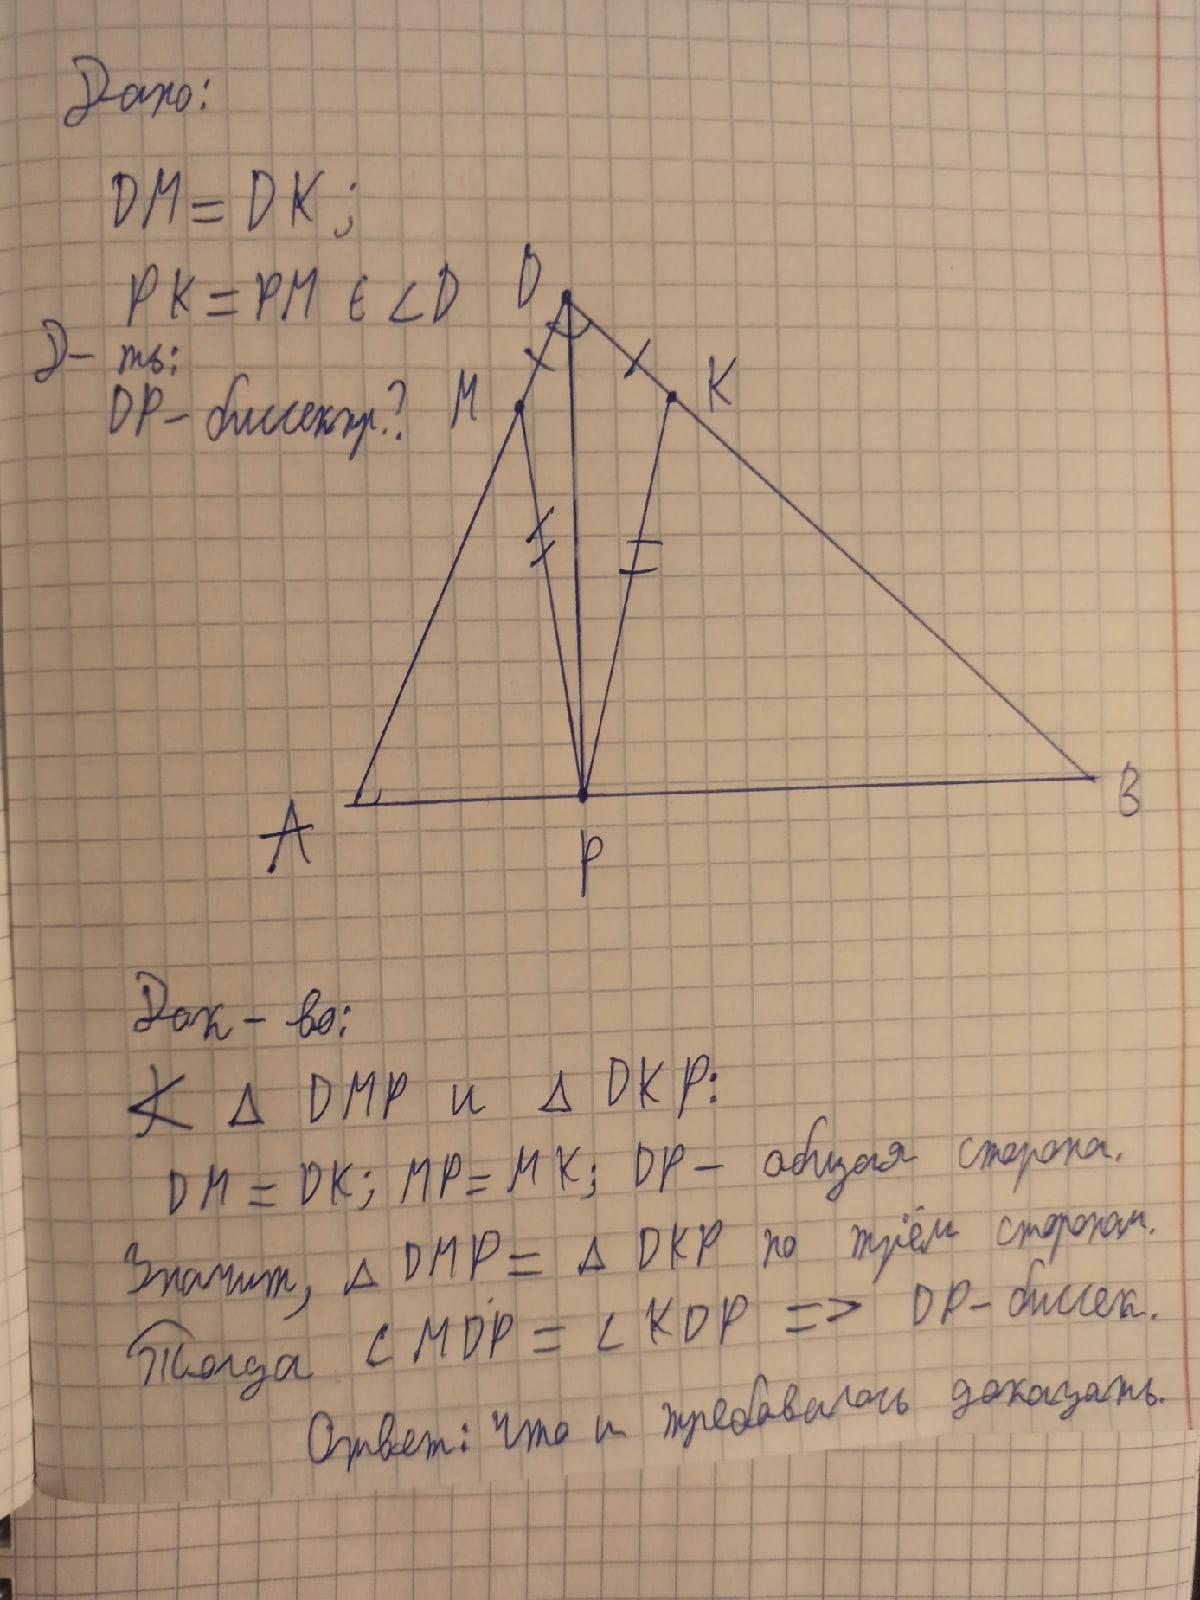 Дано:
DM = DK;
PK = PM ∈ ∠D
Д-ть:
DP - биссектр.?
D
M
K
A
P
B
Док-во:
∢ △ DMP и △ DKP:
DM = DK; MP = MK; DP - общая сторона.
Значит, △ DMP = △ DKP по трём сторонам.
Тогда ∠MDP = ∠KDP => DP - биссек.
Ответ: что и требовалось доказать.